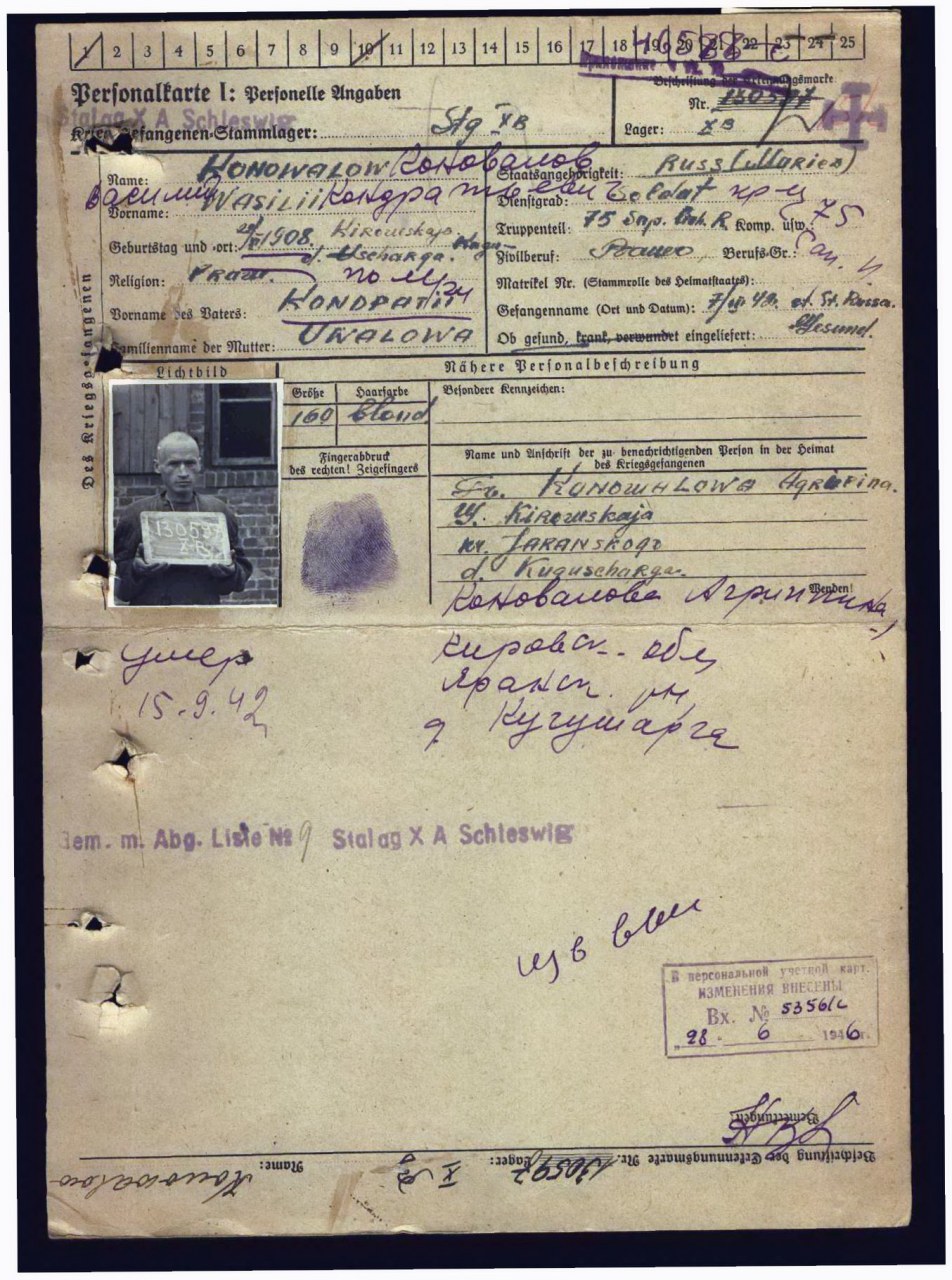 1 2 3 4 5 6 7 8 9 10 11 12 13 14 15 16 17 18 19 20 21 22 23 24 25
46588
Personalkarte I: Personelle Angaben
Beschriftung der Erkennungsmarke
Stalag X A Schleswig
Nr.
Kriegsgefangenen-Stammlager: Stg XB
Lager: XB
Des Kriegsgefangenen
Name: KONOWALOW Коновалов
Staatsangehörigkeit: RUSS (Marier)
Василий Кондратьевич
Vorname: WASILII
Dienstgrad: Soldat кр-ц
Truppenteil: 75 Komp. usw. 75
Geburtstag und -ort: 1908 Kirowskaja
d. Uscharga.
Zivilberuf: Berufs-Gr.:
Religion: Praw.
Matrikel Nr. (Stammrolle des Heimatstaates):
Vorname des Vaters: KONDPATII
Gefangenname (Ort und Datum): St. Russa.
Familienname der Mutter: UWALOWA
Ob gesund, krank, verwundet eingeliefert: Gesund.
Lichtbild
Nähere Personalbeschreibung
Größe Haarfarbe Besondere Kennzeichen:
160 blond
Fingerabdruck
des rechten! Zeigefingers
Name und Anschrift der zu benachrichtigenden Person in der Heimat
des Kriegsgefangenen
Fr. KONOWALOWA Agripina.
Kirowskaja
JARANSKOGO
d. Kuguscharga.
Wenden!
Коновалова Агриппина
умер
15.9.42
Кировск. обл
Яранск. рн
д Кугушарга
Gem. m. Abg. Liste № 9 Stalag X A Schleswig
В персональной учетной карт.
ИЗМЕНЕНИЯ ВНЕСЕНЫ
Вх. № 5356/с
28 - 6 1946 г.
Bemerkungen:
Beschriftung der Erkennungsmarke Nr. 130597 Lager: X B Name: Konowalow